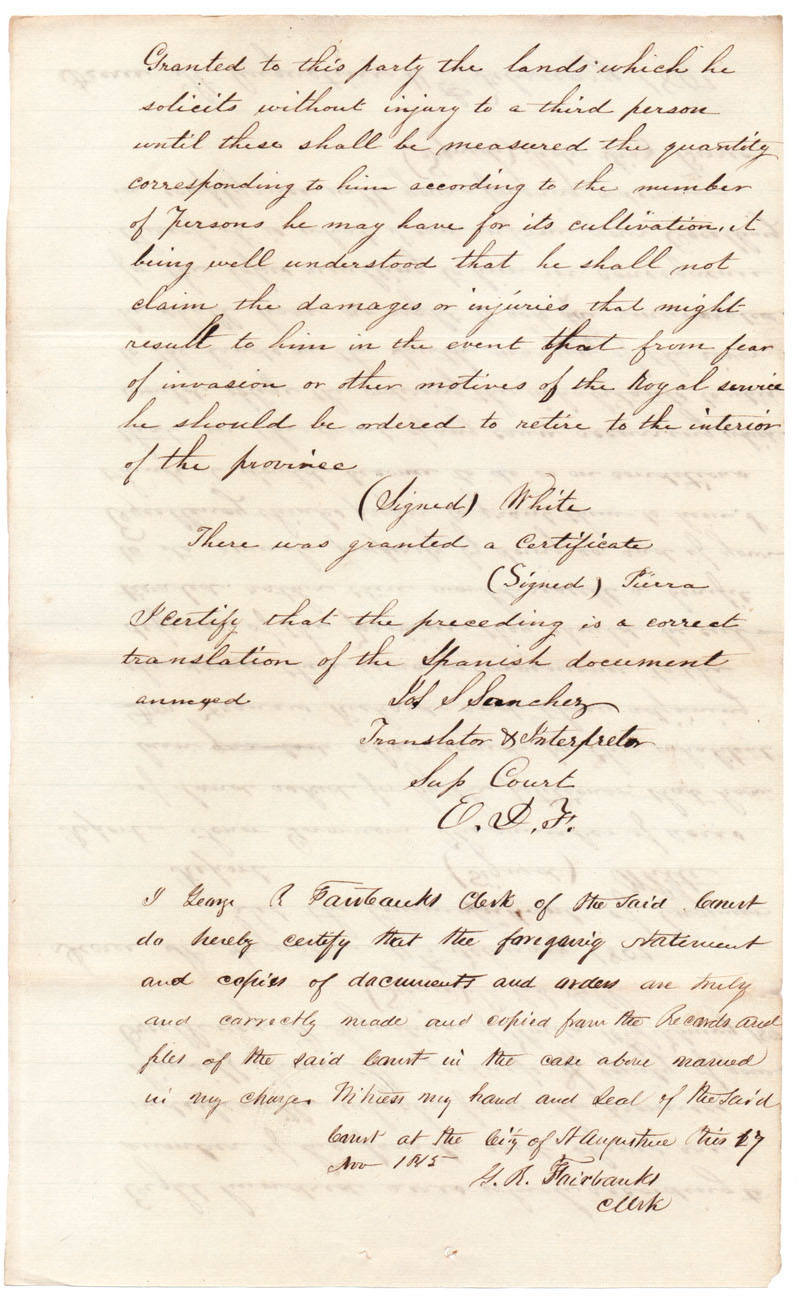 Granted to this party the lands which he
solicits without injury to a third person
until these shall be measured the quantity
corresponding to him according to the number
of Persons he may have for its cultivation, it
being well understood that he shall not
claim the damages or injuries that might
result to him in the event that from fear
of invasion or other motives of the Royal service
he should be ordered to retire to the interior
of the province
(Signed) White
There was granted a Certificate
(Signed) Pierra
I certify that the preceding is a correct
translation of the Spanish document
annexed S Sanchez
Translator & Interpreter
Sup Court
E. D. F.
I George R Fairbanks Clerk of the said Court
do hereby certify that the foregoing statement
and copies of documents and orders are truly
and correctly made and copied from the Records and
files of the said Court in the case above named
in my charge. Witness my hand and Seal of the said
Court at the City of St Augustine this 17
Nov 1845
G. R. Fairbanks
Clerk